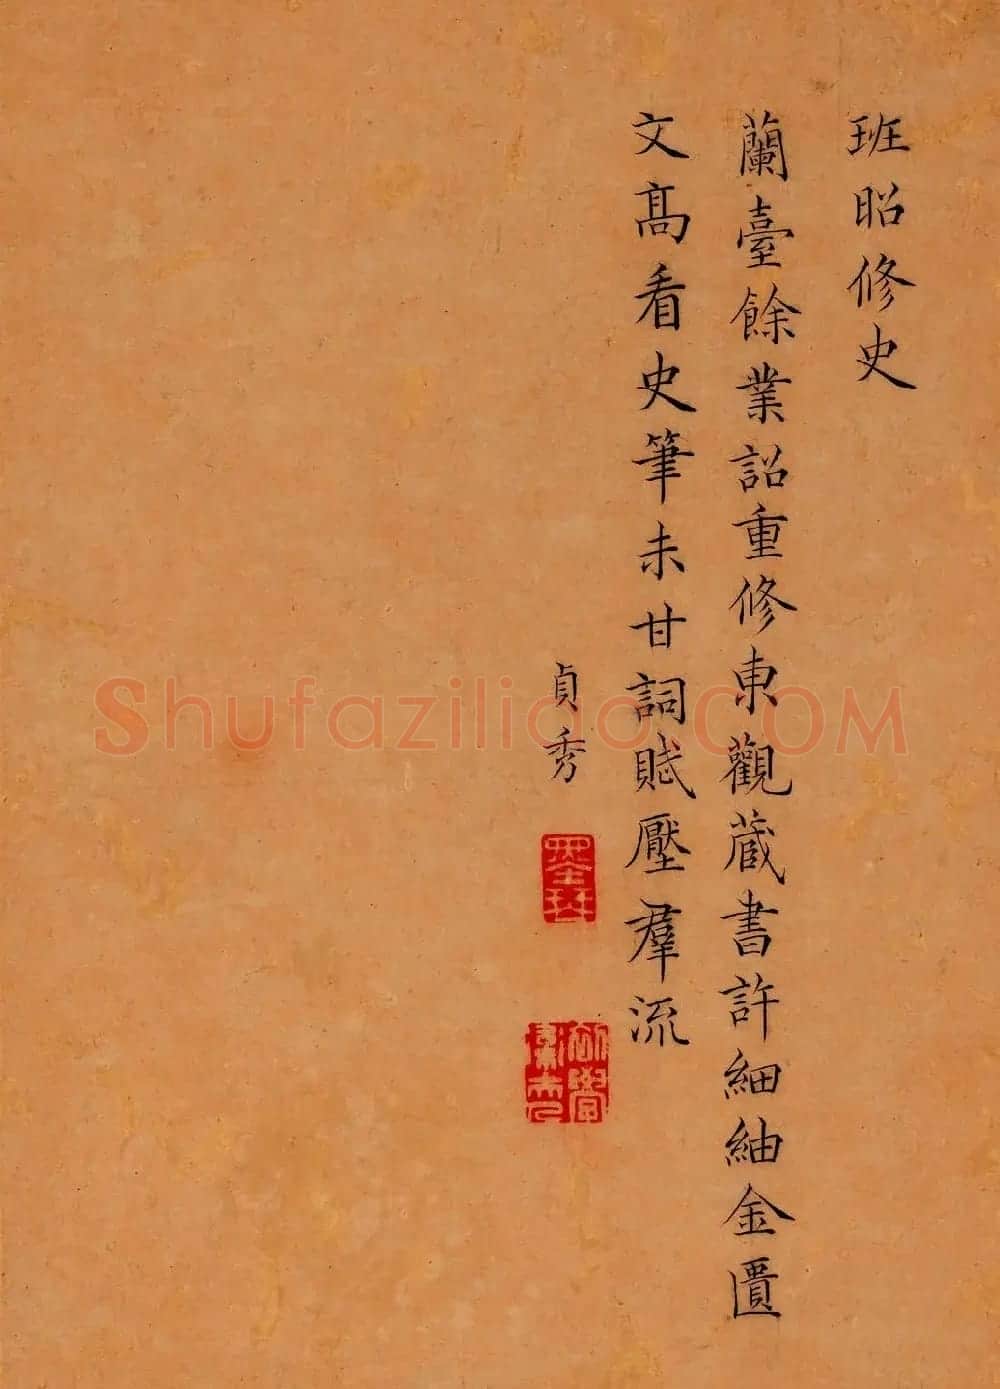 班昭修史
蘭臺餘業詔重修東觀蔵書許細紬金匱
文髙看史筆未甘詞賦壓羣流
貞秀
墨琴
Shufazilido.COM